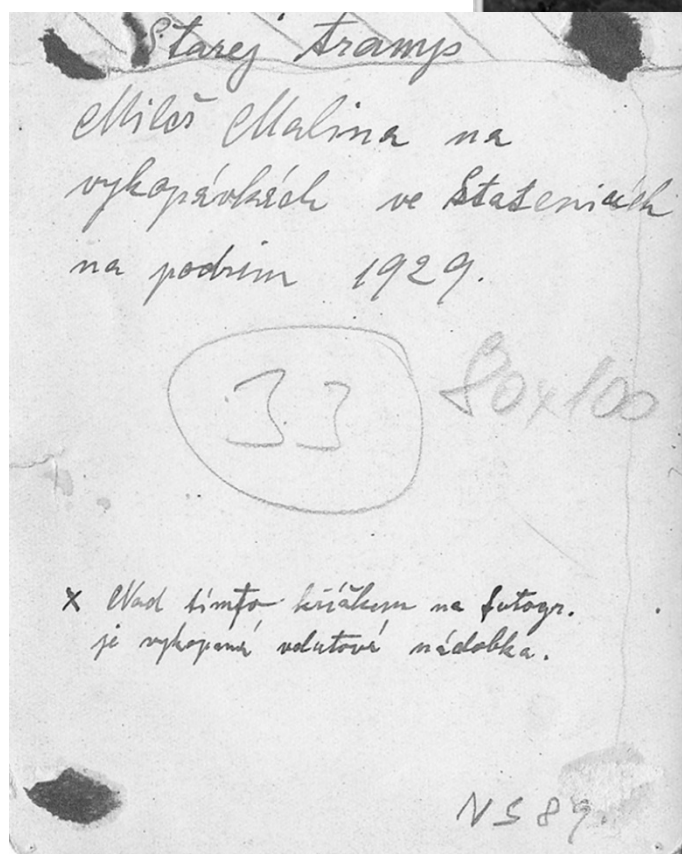 Starej tramp
Miloš Malina na
vykopávkách ve Statenicích
na podzim 1929.
33
80x100
x Nad tímto křížkem na fotogr.
je vykopaná volutová nádobka.
NS 89.